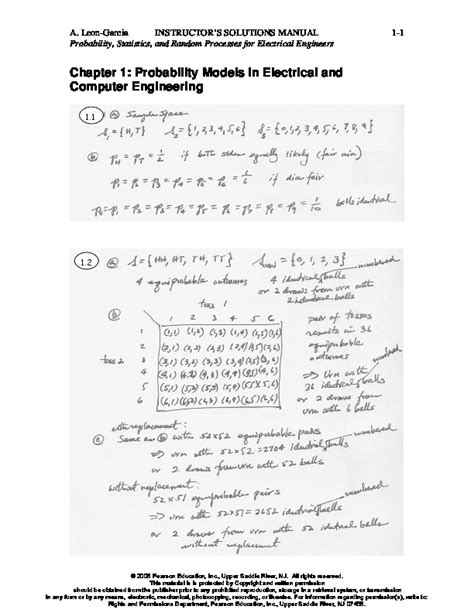 A. Leon-Garcia INSTRUCTOR'S SOLUTIONS MANUAL 1-1
Probability, Statistics, and Random Processes for Electrical Engineers
Chapter 1: Probability Models in Electrical and
Computer Engineering
1.1 ⓐ Sample Space
S₁ = {H,T} S₂ = {1,2,3,4,5,6} S₃ = {0,1,2,3,4,5,6,7,8,9}
ⓑ p_H = p_T = 1/2 if both sides equally likely (fair coin)
p₁ = p₂ = p₃ = p₄ = p₅ = p₆ = 1/6 if die fair
p₀ = p₁ = p₂ = p₃ = p₄ = p₅ = p₆ = p₇ = p₈ = p₉ = 1/10 balls identical
1.2 ⓐ S = {HH, HT, TH, TT} S_urn = {0, 1, 2, 3} numbered
4 equiprobable outcomes 4 identical balls
or 2 draws from urn with
2 identical balls
ⓑ toss 1
1 2 3 4 5 6 pair of tosses
1 (1,1) (1,2) (1,3) (1,4) (1,5) (1,6) results in 36
2 (2,1) (2,2) (2,3) (2,4) (2,5) (2,6) equiprobable
toss 2 3 (3,1) (3,2) (3,3) (3,4) (3,5) (3,6) outcomes numbered
4 (4,1) (4,2) (4,3) (4,4) (4,5) (4,6) ⇒ Urn with
5 (5,1) (5,2) (5,3) (5,4) (5,5) (5,6) 36 identical balls
6 (6,1) (6,2) (6,3) (6,4) (6,5) (6,6) or 2 draws from
urn with 6 balls
with replacement:
ⓒ Same as ⓑ with 52×52 equiprobable pairs numbered
⇒ urn with 52×52 = 2704 identical balls
or 2 draws from urn with 52 balls
without replacement:
52×51 equiprobable pairs numbered
⇒ urn with 52×51 = 2652 identical balls
or 2 draws from urn with 52 identical balls
without replacement
© 2008 Pearson Education, Inc., Upper Saddle River, NJ. All rights reserved.
This material is protected by Copyright and written permission
should be obtained from the publisher prior to any prohibited reproduction, storage in a retrieval system, or transmission
in any form or by any means, electronic, mechanical, photocopying, recording, or likewise. For information regarding permission(s), write to:
Rights and Permissions Department, Pearson Education, Inc., Upper Saddle River, NJ 07458.